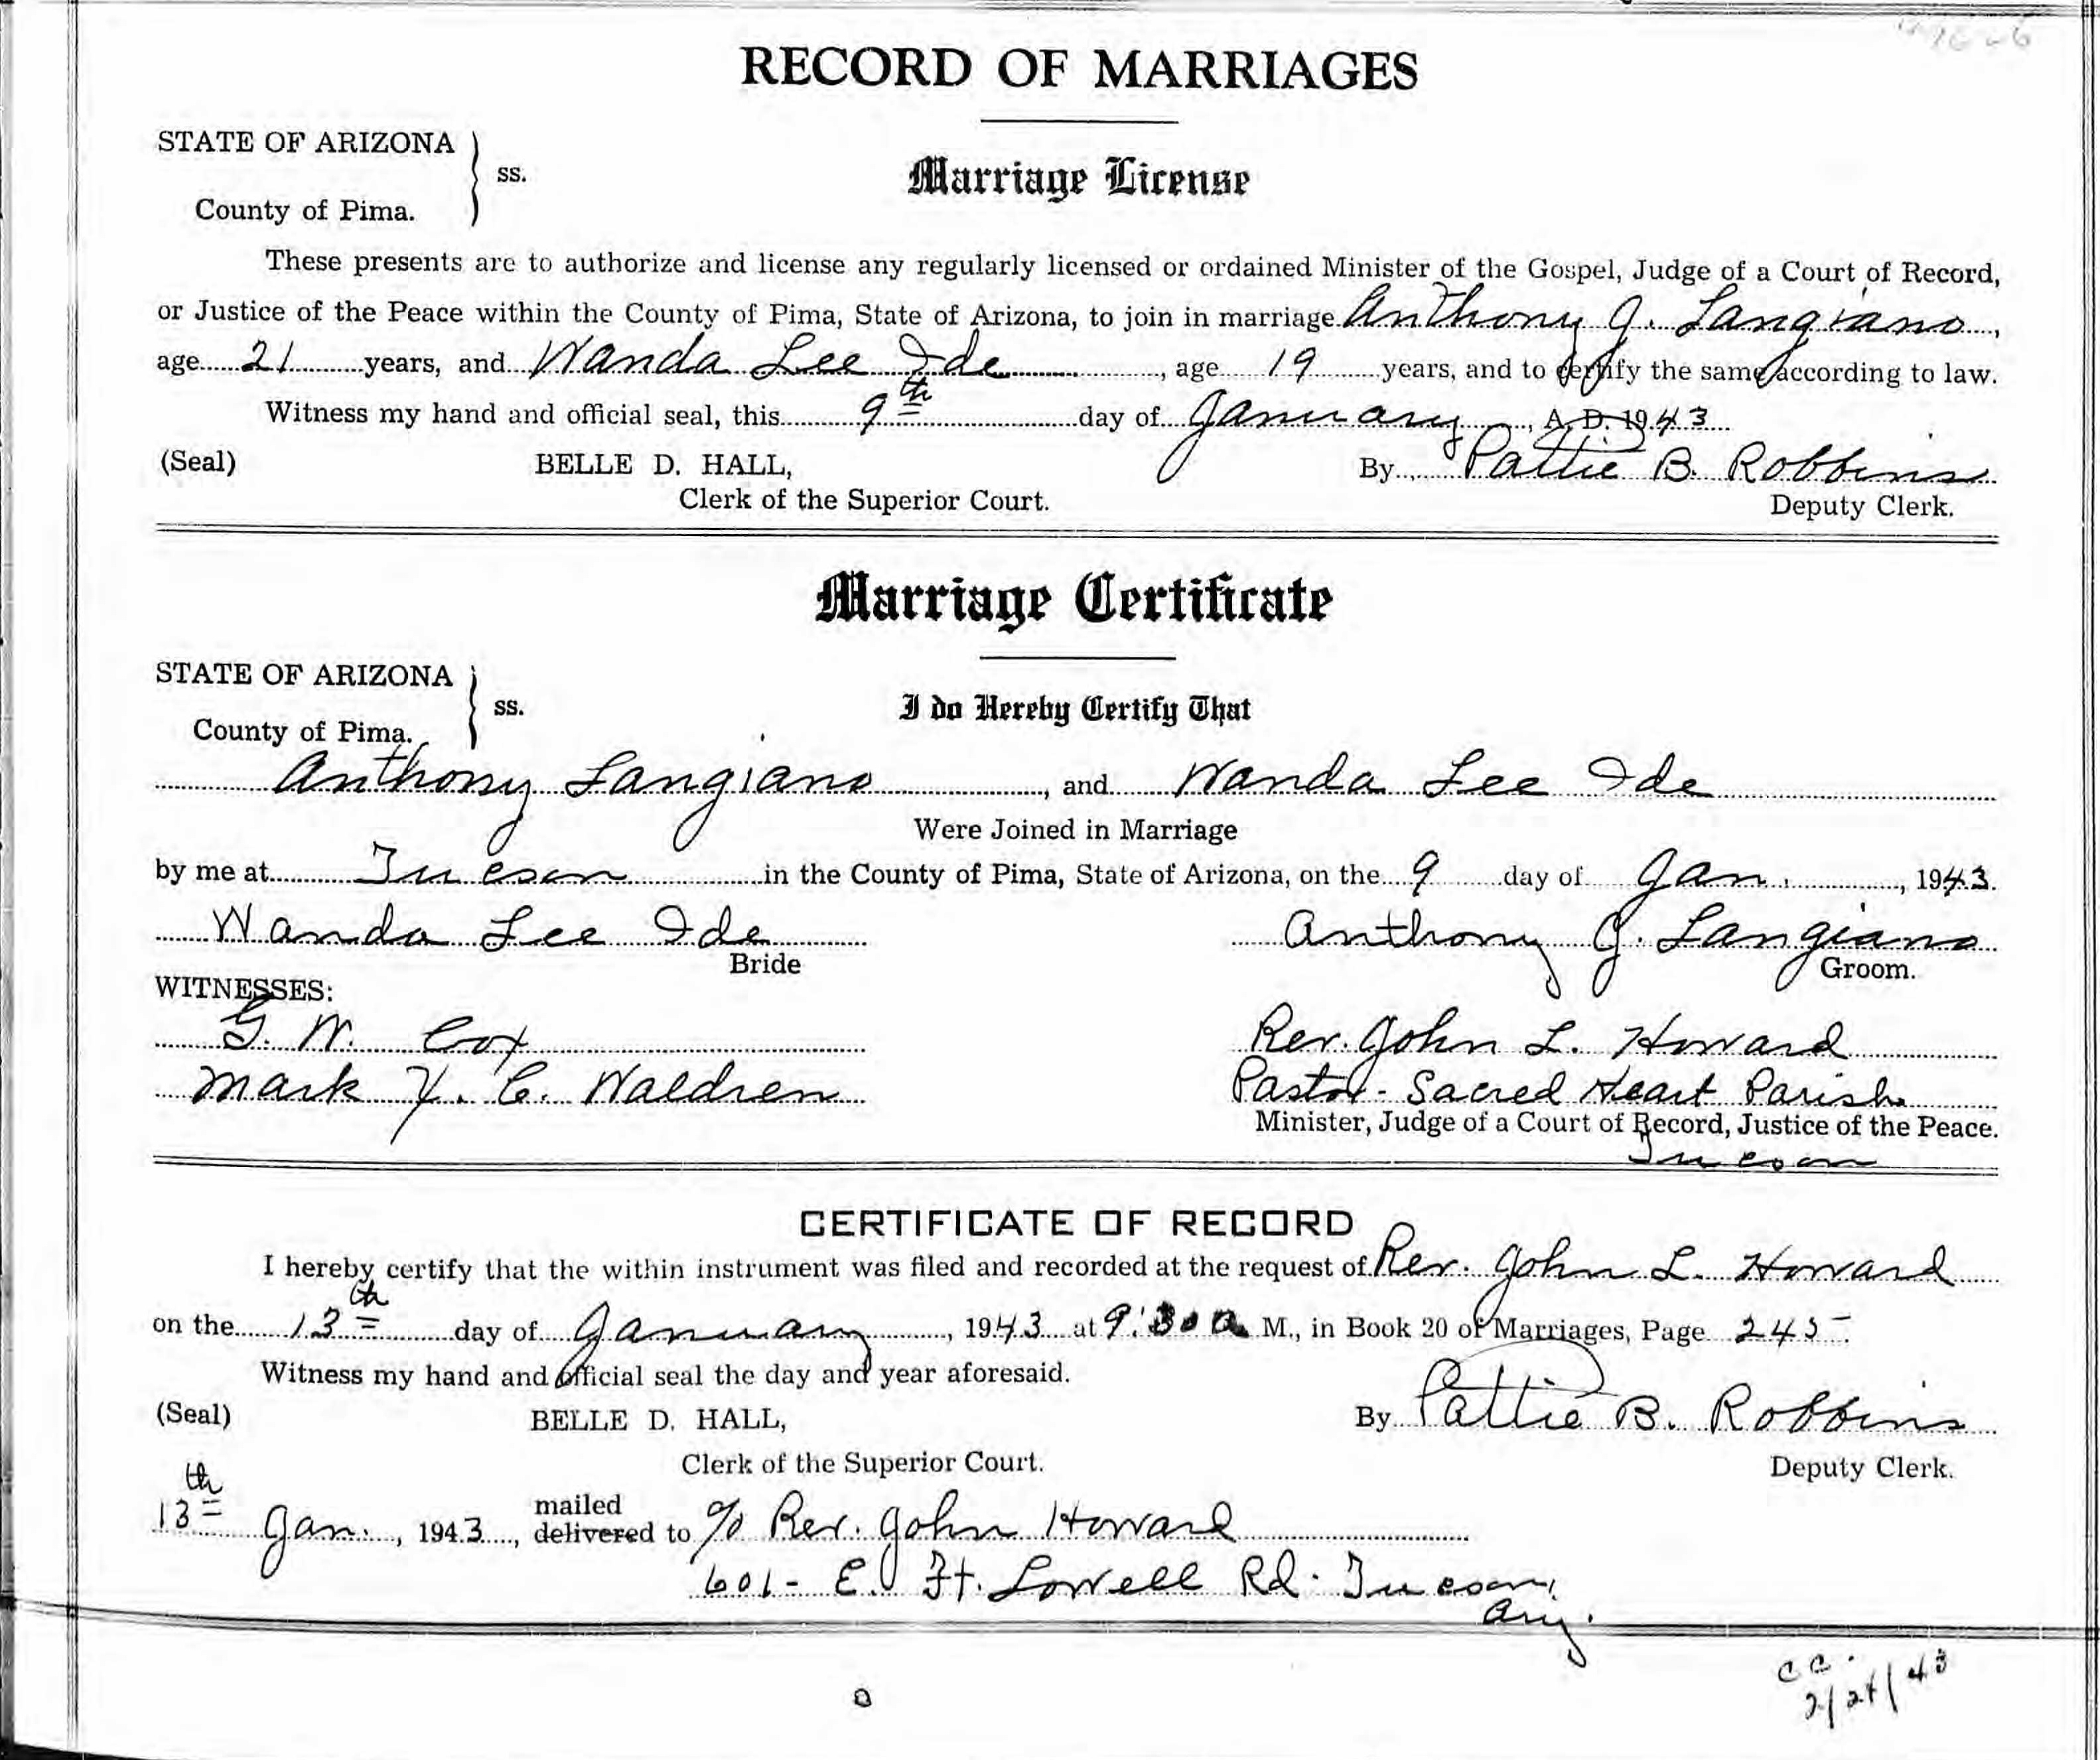 RECORD OF MARRIAGES
STATE OF ARIZONA
ss.
County of Pima.
Marriage License
These presents are to authorize and license any regularly licensed or ordained Minister of the Gospel, Judge of a Court of Record,
or Justice of the Peace within the County of Pima, State of Arizona, to join in marriage Anthony J. Langiano,
age 21 years, and Wanda Lee Ide, age 19 years, and to certify the same according to law.
Witness my hand and official seal, this 9th day of January, A. D. 1943
(Seal) BELLE D. HALL, By Pattie B. Robbins
Clerk of the Superior Court. Deputy Clerk.
Marriage Certificate
STATE OF ARIZONA
ss.
County of Pima.
I do Hereby Certify That
Anthony Langiano, and Wanda Lee Ide
Were Joined in Marriage
by me at Tucson in the County of Pima, State of Arizona, on the 9 day of Jan., 1943.
Wanda Lee Ide Anthony J. Langiano
Bride Groom.
WITNESSES:
G. W. Cox Rev. John L. Howard
Mark Y. C. Waldren Pastor - Sacred Heart Parish
Minister, Judge of a Court of Record, Justice of the Peace.
Tucson
CERTIFICATE OF RECORD
I hereby certify that the within instrument was filed and recorded at the request of Rev. John L. Howard
on the 13th day of January, 1943 at 9:30 a M., in Book 20 of Marriages, Page 245.
Witness my hand and official seal the day and year aforesaid.
(Seal) BELLE D. HALL, By Pattie B. Robbins
Clerk of the Superior Court. Deputy Clerk.
13th Jan., 1943, mailed delivered to c/o Rev. John Howard
601 - E. Ft. Lowell Rd. Tucson,
Ariz.
CC.
2/24/43